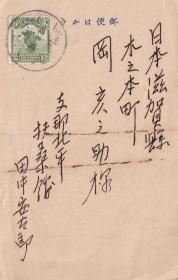 郵便はかき
日本滋賀縣
木之本町
岡亥之助様
支那北平
扶桑館
田中安太郎